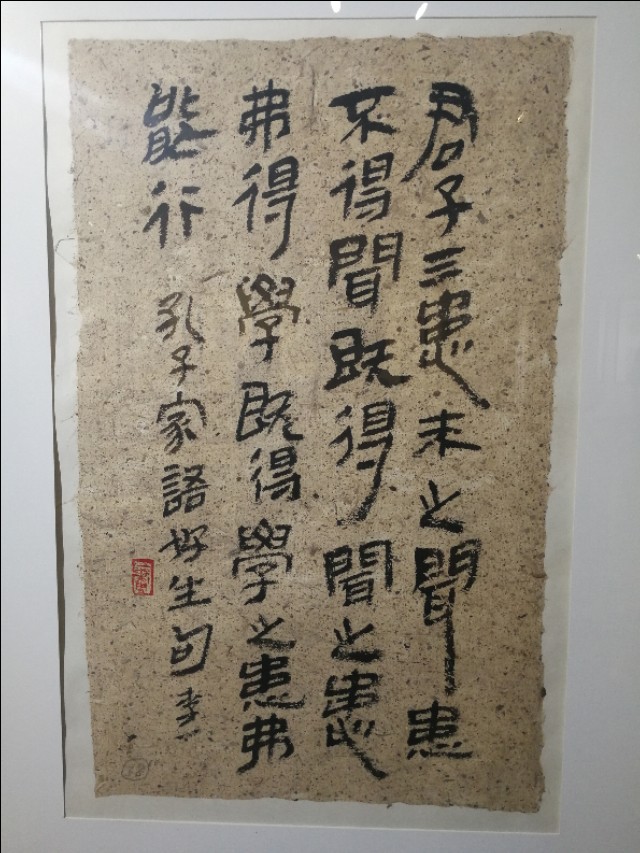 君子三患未之聞患
不得聞既得聞之患
弗得學既得學之患弗
能行 孔子家語好生句 李一